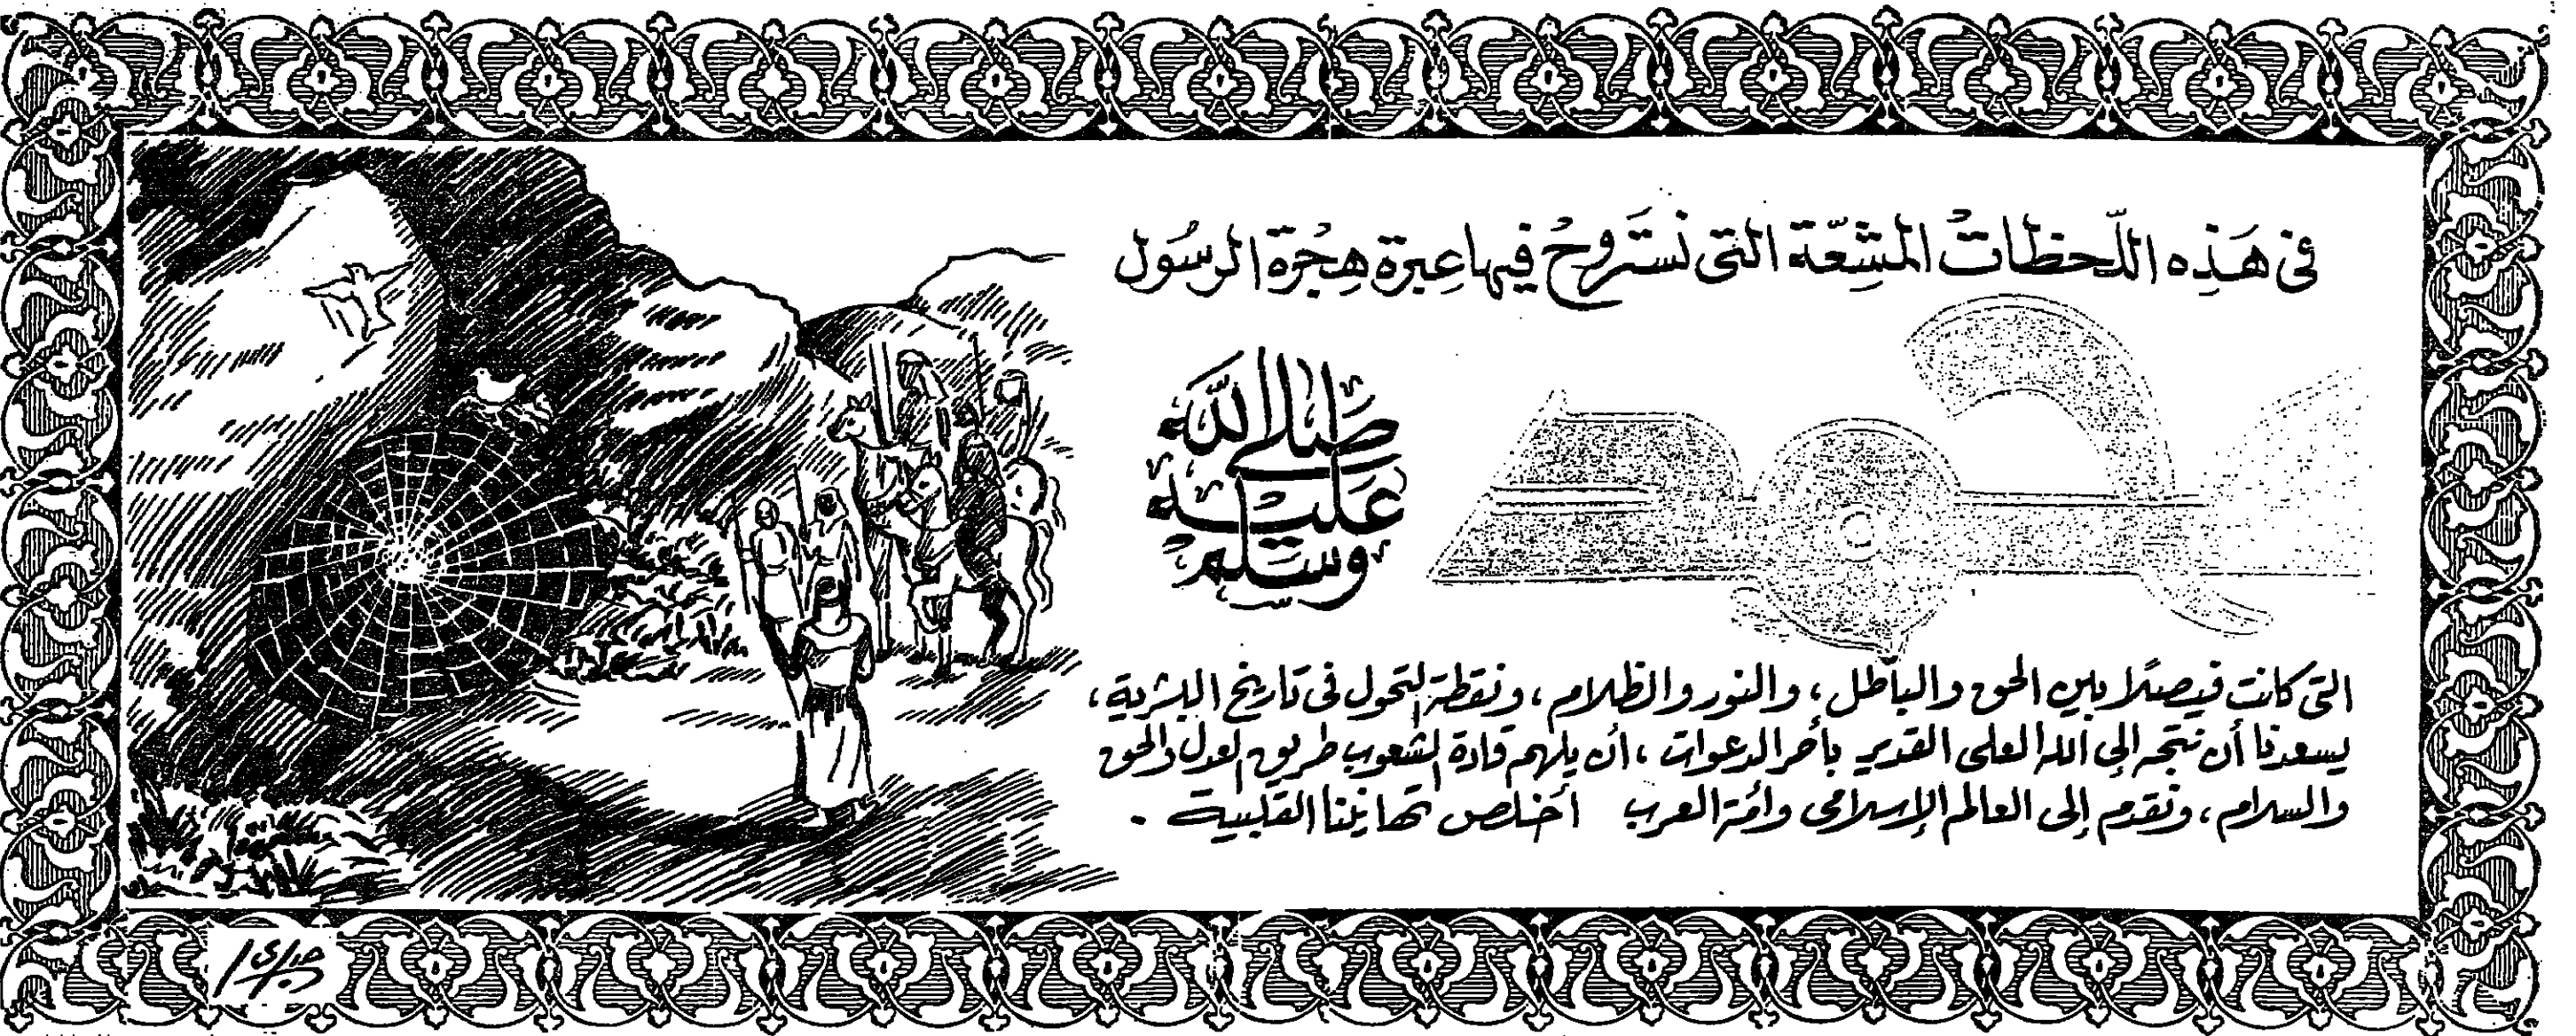 فى هَذِه اللّحظاتُ المشِعّة التى نَستَروحُ فيها عِبرة هِجُرة الرسُول
صَلى الله
عَليه
وسَلم
التى كانت فيصلًا بين الحق والباطل ، والنور والظلام ، ونقطة لتحول فى تاريخ البشرية ،
يسعدنا أن نتجه إلى الله العلى القدير بأحر الدعوات ، أن يلهم قادة الشعوب طريق العدل والحق
والسلام ، ونقدم إلى العالم الإسلامى وأمة العرب أخلص تهانينا القلبية .